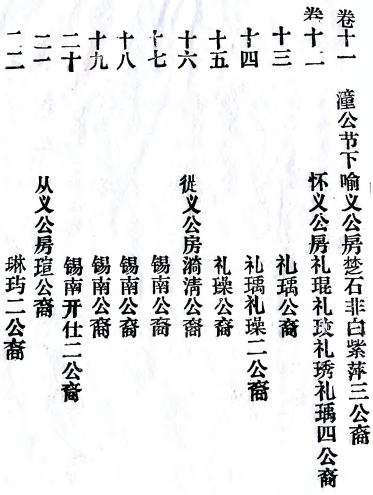 卷十一 潼公节下喻义公房楚石非白紫萍三公裔
卷十二 怀义公房礼琨礼玟礼琇礼瑀四公裔
十三 礼瑀公裔
十四 礼瑀礼璪二公裔
十五 礼璪公裔
十六 從义公房漪清公裔
十七 锡南公裔
十八 锡南公裔
十九 锡南公裔
二十 锡南开仕二公裔
二一 从义公房瑄公裔
二二 琳玙二公裔